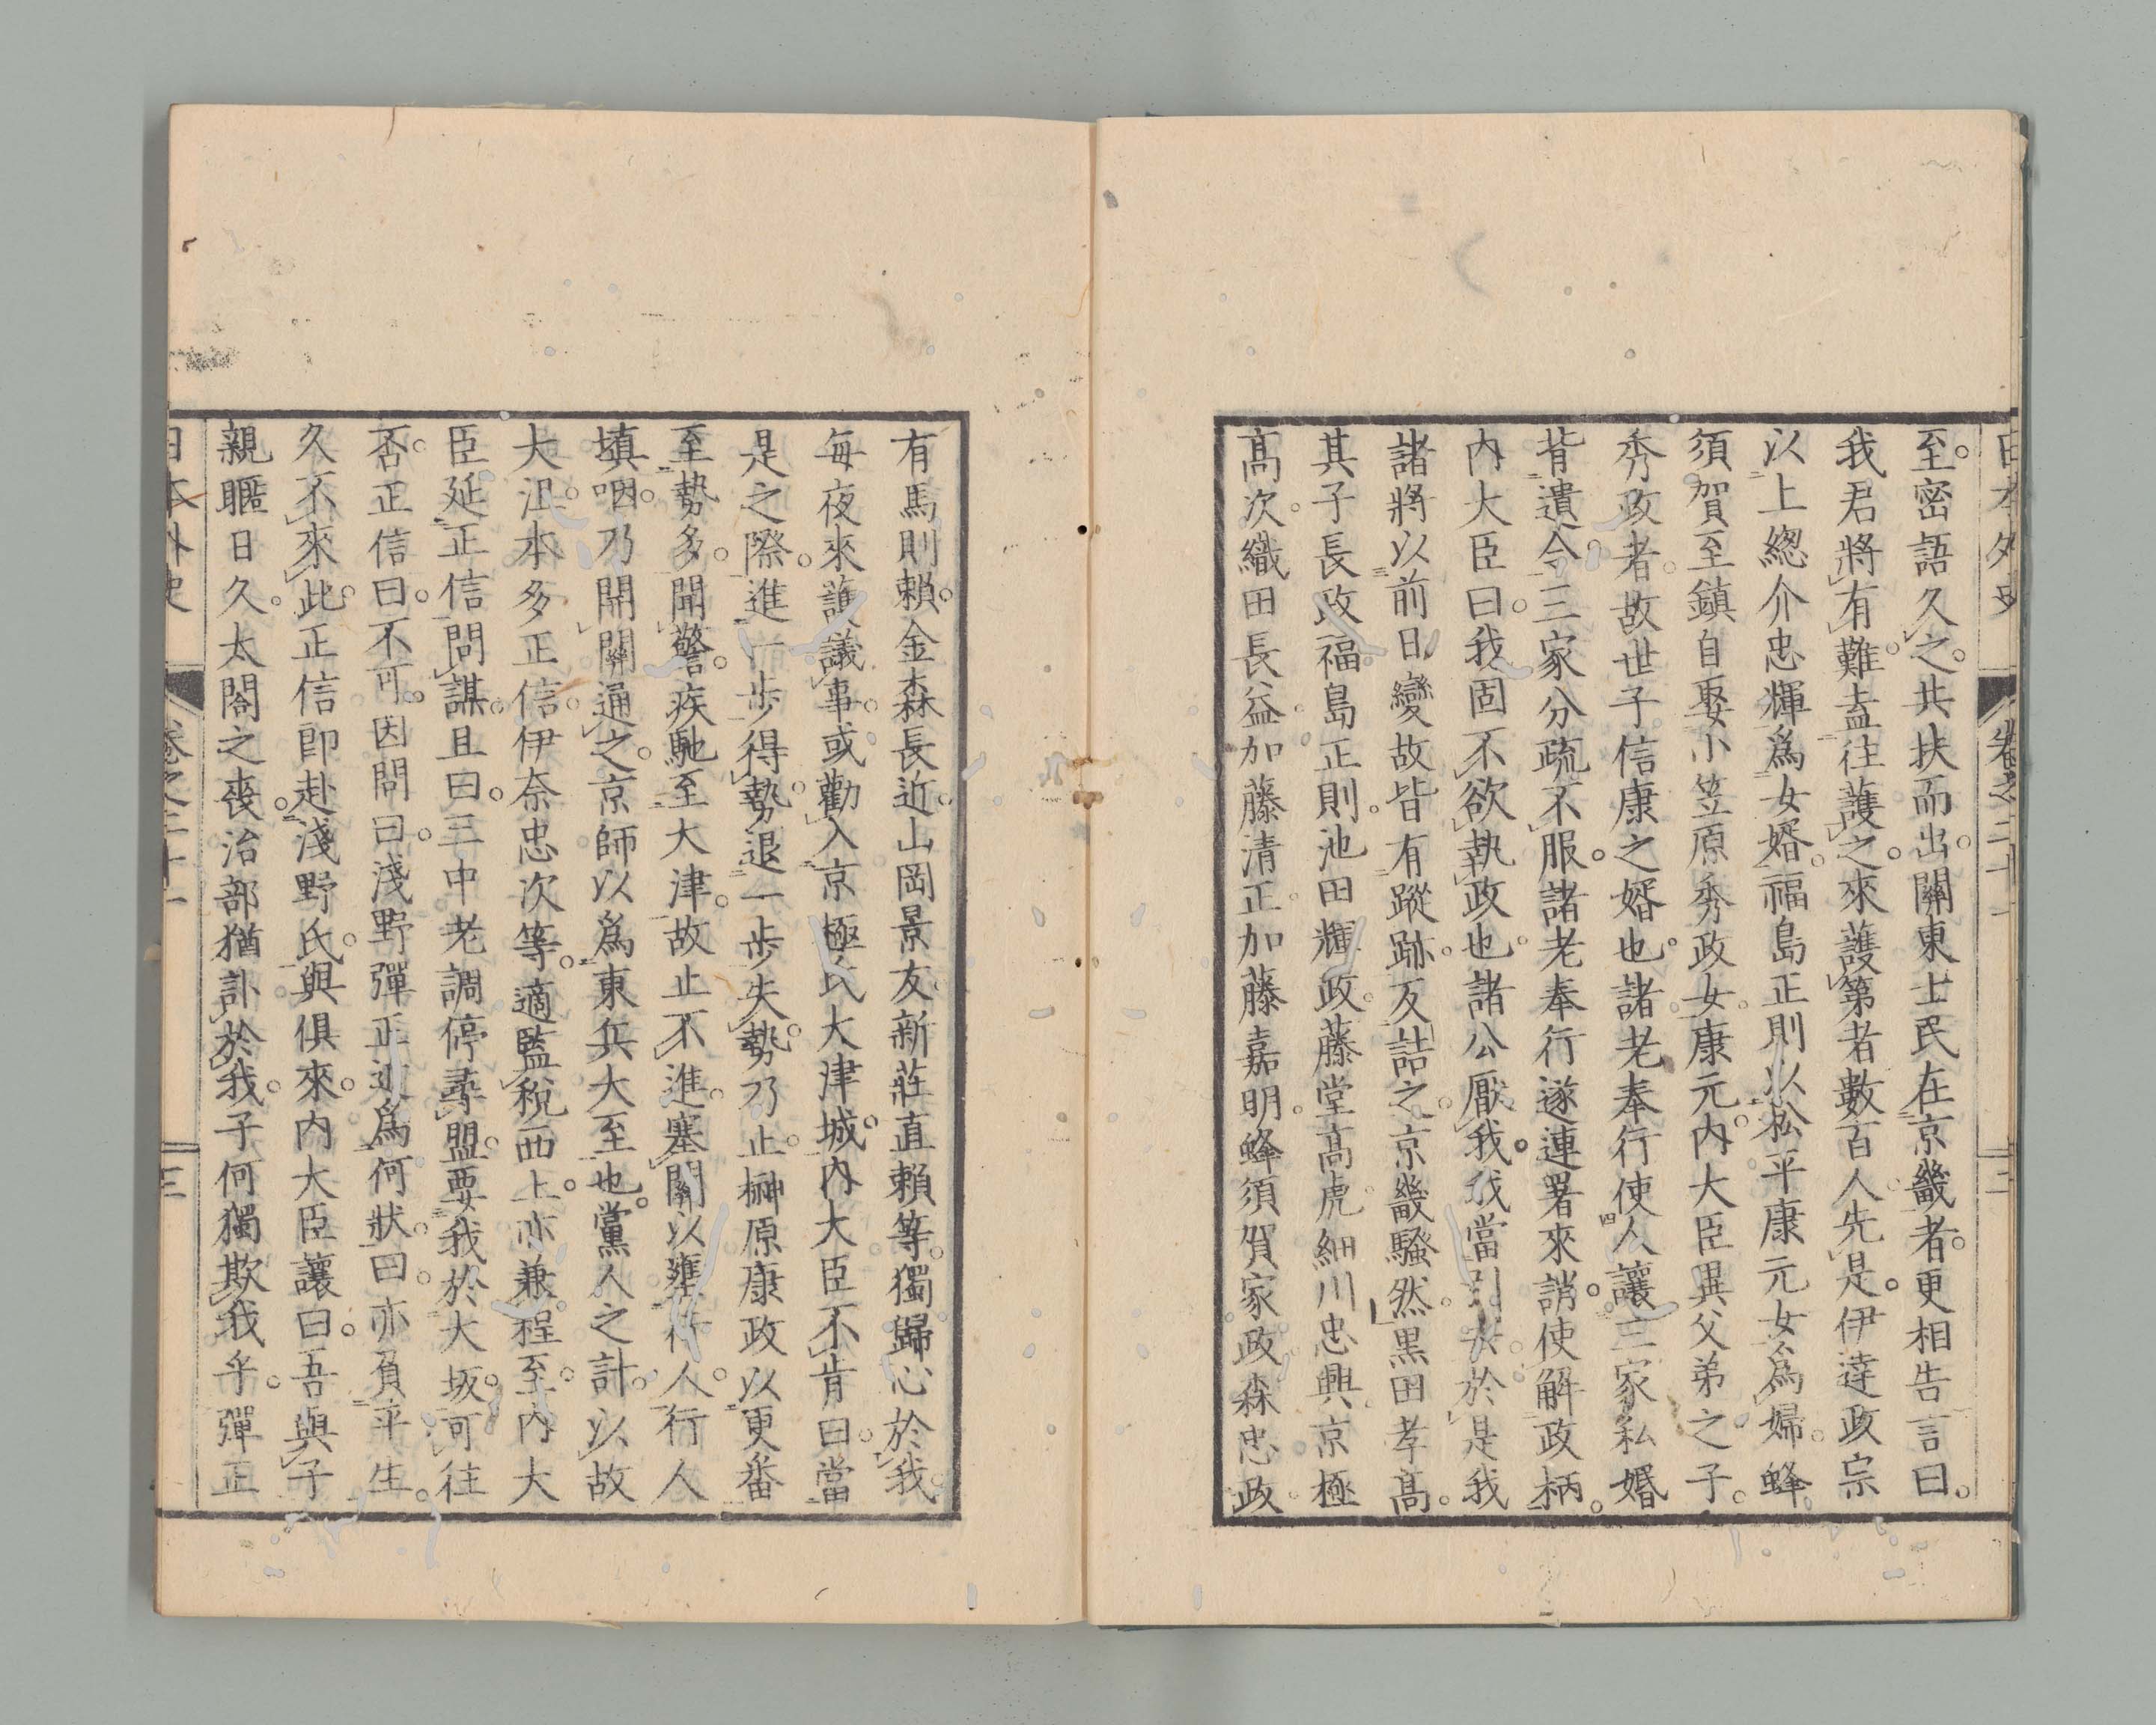 日本外史 卷之二十一 三
至。密語久之。共扶而出。關東士民在京畿者。更相告言曰。
我君將有難。盍往護之。來護第者數百人。先是。伊達政宗
以上總介忠輝爲女婿。福島正則以松平康元女爲婦。蜂
須賀至鎮自娶小笠原秀政女。康元。內大臣異父弟之子。
秀政者。故世子信康之婿也。諸老奉行使人讓三家私婚
背遺令。三家分疏不服。諸老奉行遂連署來誚。使解政柄。
內大臣曰。我固不欲執政也。諸公厭我。我當引去。於是我
諸將以前日變故皆有蹤跡。反詰之。京畿騷然。黑田孝高。
其子長政。福島正則。池田輝政。藤堂高虎。細川忠興。京極
高次。織田長益。加藤清正。加藤嘉明。蜂須賀家政。森忠政。
有馬則賴。金森長近。山岡景友。新莊直賴等。獨歸心於我。
每夜來護議事。或勸入京極氏大津城。內大臣不肯曰。當
是之際。進一步得勢。退一步失勢。乃止。榊原康政以更番
至勢多。聞警。疾馳至大津。故止不進。塞關以壅行人。行人
填咽。乃開關通之。京師以爲東兵大至也。黨人之計。以故
大沮。本多正信。伊奈忠次等。適監稅西上。亦兼程至。內大
臣延正信問謀。且曰。三中老調停尋盟。要我於大坂。可往
否。正信曰。不可。因問曰。淺野彈正近爲何狀。曰。亦負平生。
久不來此。正信卽赴淺野氏。與俱來。內大臣讓曰。吾與子
親暱日久。太閤之喪。治部猶訃於我。子何獨欺我乎。彈正
日本外史 卷之二十一 三